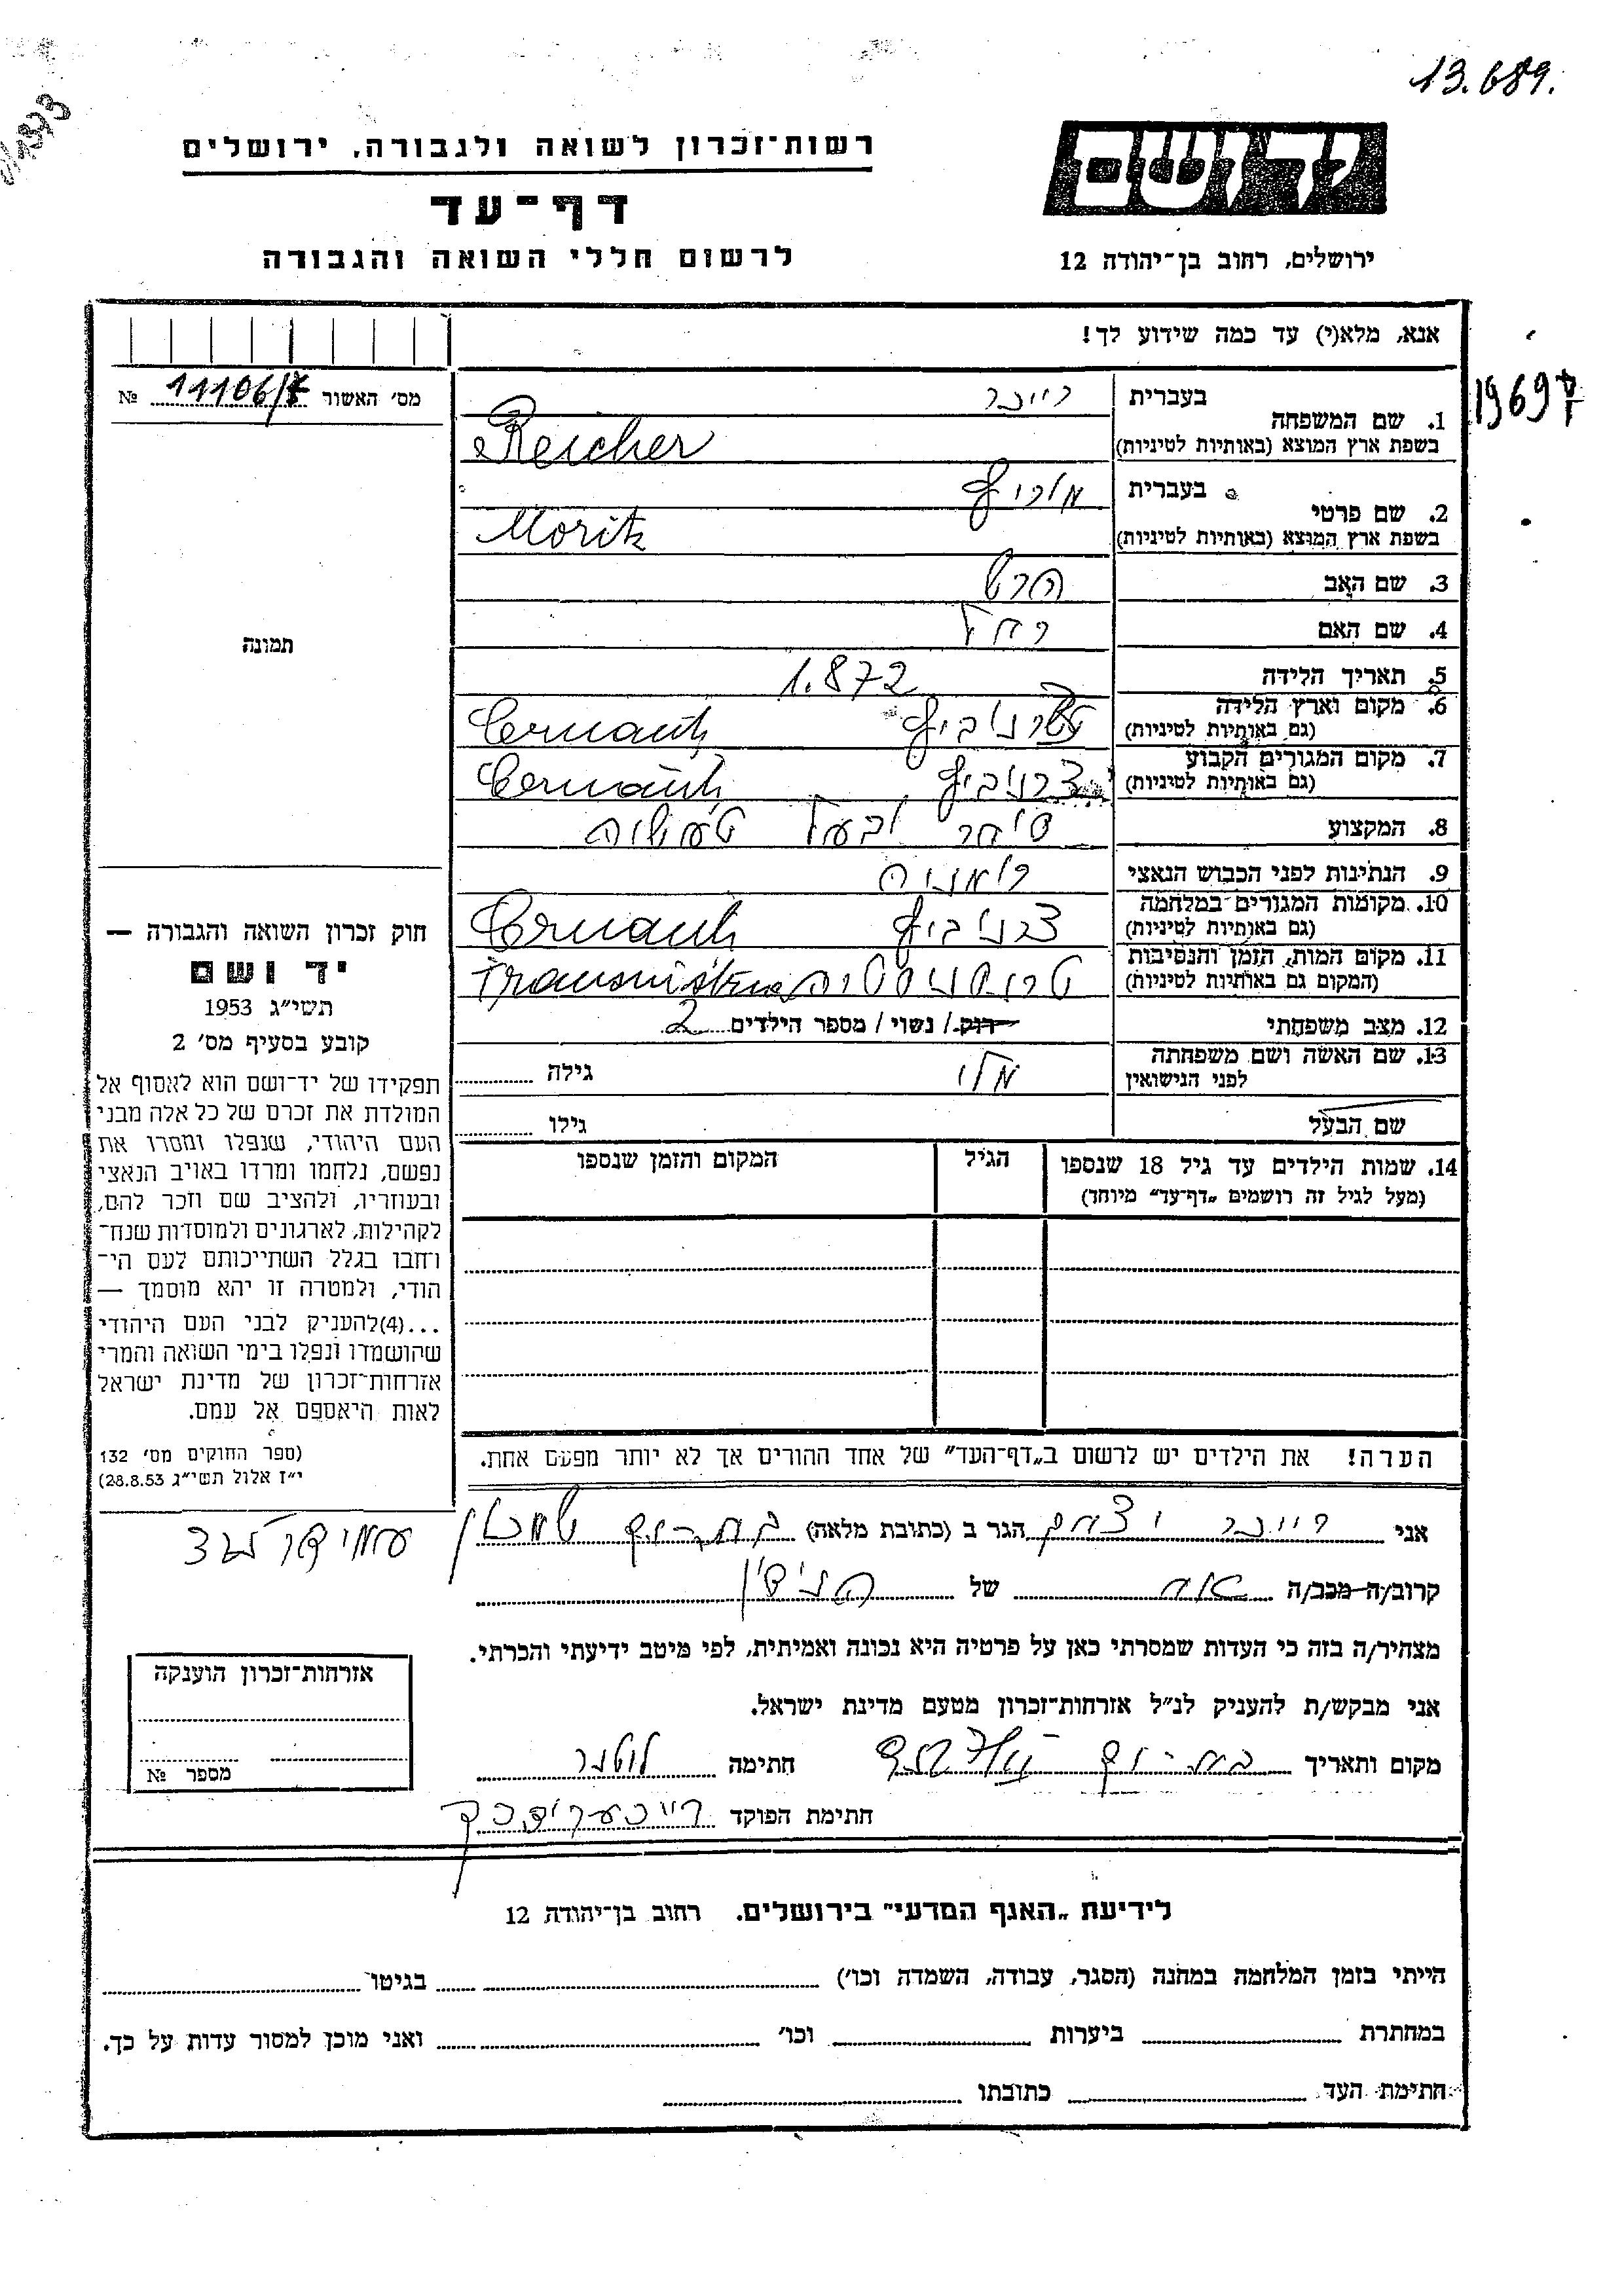 13.689.
רשות־זכרון לשואה ולגבורה, ירושלים
יד ושם
דף־עד
לרשום חללי השואה והגבורה
ירושלים, רחוב בן־יהודה 12
אנא, מלא(י) עד כמה שידוע לך!
מס׳ האשור 11106/ №
1969
1. שם המשפחה בעברית רייכר
בשפת ארץ המוצא (באותיות לטיניות) Reicher
2. שם פרטי בעברית מוריץ
בשפת ארץ המוצא (באותיות לטיניות) Moritz
3. שם האב הרש
4. שם האם רחל
5. תאריך הלידה 1.872
6. מקום וארץ הלידה (גם באותיות לטיניות) Cernautz
7. מקום המגורים הקבוע (גם באותיות לטיניות) צרנוביץ Cernautz
8. המקצוע סוחר ובעל תעשיה
9. הנתינות לפני הכבוש הנאצי רומניה
10. מקומות המגורים במלחמה (גם באותיות לטיניות) צרנוביץ Cernautz
11. מקום המות, הזמן והנסיבות (המקום גם באותיות לטיניות) טרנסניסטריה
12. מצב משפחתי רוק / נשוי / מספר הילדים 2
13. שם האשה ושם משפחתה לפני הנישואין מלי גילה
שם הבעל גילו
14. שמות הילדים עד גיל 18 שנספו הגיל המקום והזמן שנספו
(מעל לגיל זה רושמים „דף־עד״ מיוחד)
הערה! את הילדים יש לרשום ב„דף־העד״ של אחד ההורים אך לא יותר מפעם אחת.
תמונה
חוק זכרון השואה והגבורה —
יד ושם
תשי״ג 1953
קובע בסעיף מס׳ 2
תפקידו של יד־ושם הוא לאסוף אל
המולדת את זכרם של כל אלה מבני
העם היהודי, שנפלו ומסרו את
נפשם, נלחמו ומרדו באויב הנאצי
ובעוזריו, ולהציב שם וזכר להם,
לקהילות, לארגונים ולמוסדות שנח־
רחבו בגלל השתייכותם לעם הי־
הודי, ולמטרה זו יהא מוסמך —
...(4)להעניק לבני העם היהודי
שהושמדו ונפלו בימי השואה והמרי
אזרחות־זכרון של מדינת ישראל
לאות היאספם אל עמם.
(ספר החוקים מס׳ 132
י״ז אלול תשי״ג 28.8.53)
אני רייכר יצחק הגר ב (כתובת מלאה)
קרוב/ה מכר/ה של
מצהיר/ה בזה כי העדות שמסרתי כאן על פרטיה היא נכונה ואמיתית, לפי מיטב ידיעתי והכרתי.
אני מבקש/ת להעניק לנ״ל אזרחות־זכרון מטעם מדינת ישראל.
מקום ותאריך חתימה
חתימת הפוקד
אזרחות־זכרון הוענקה
מספר №
לידיעת „האגף המדעי״ בירושלים. רחוב בן־יהודה 12
הייתי בזמן המלחמה במחנה (הסגר, עבודה, השמדה וכו׳) בגיטו
במחתרת ביערות וכו׳ ואני מוכן למסור עדות על כך.
חתימת העד כתובתו